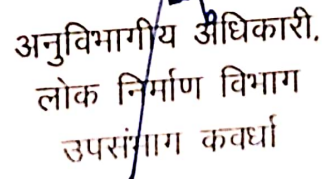 अनुविभागीय अधिकारी.
लोक निर्माण विभाग
उपसंभाग कवर्धा